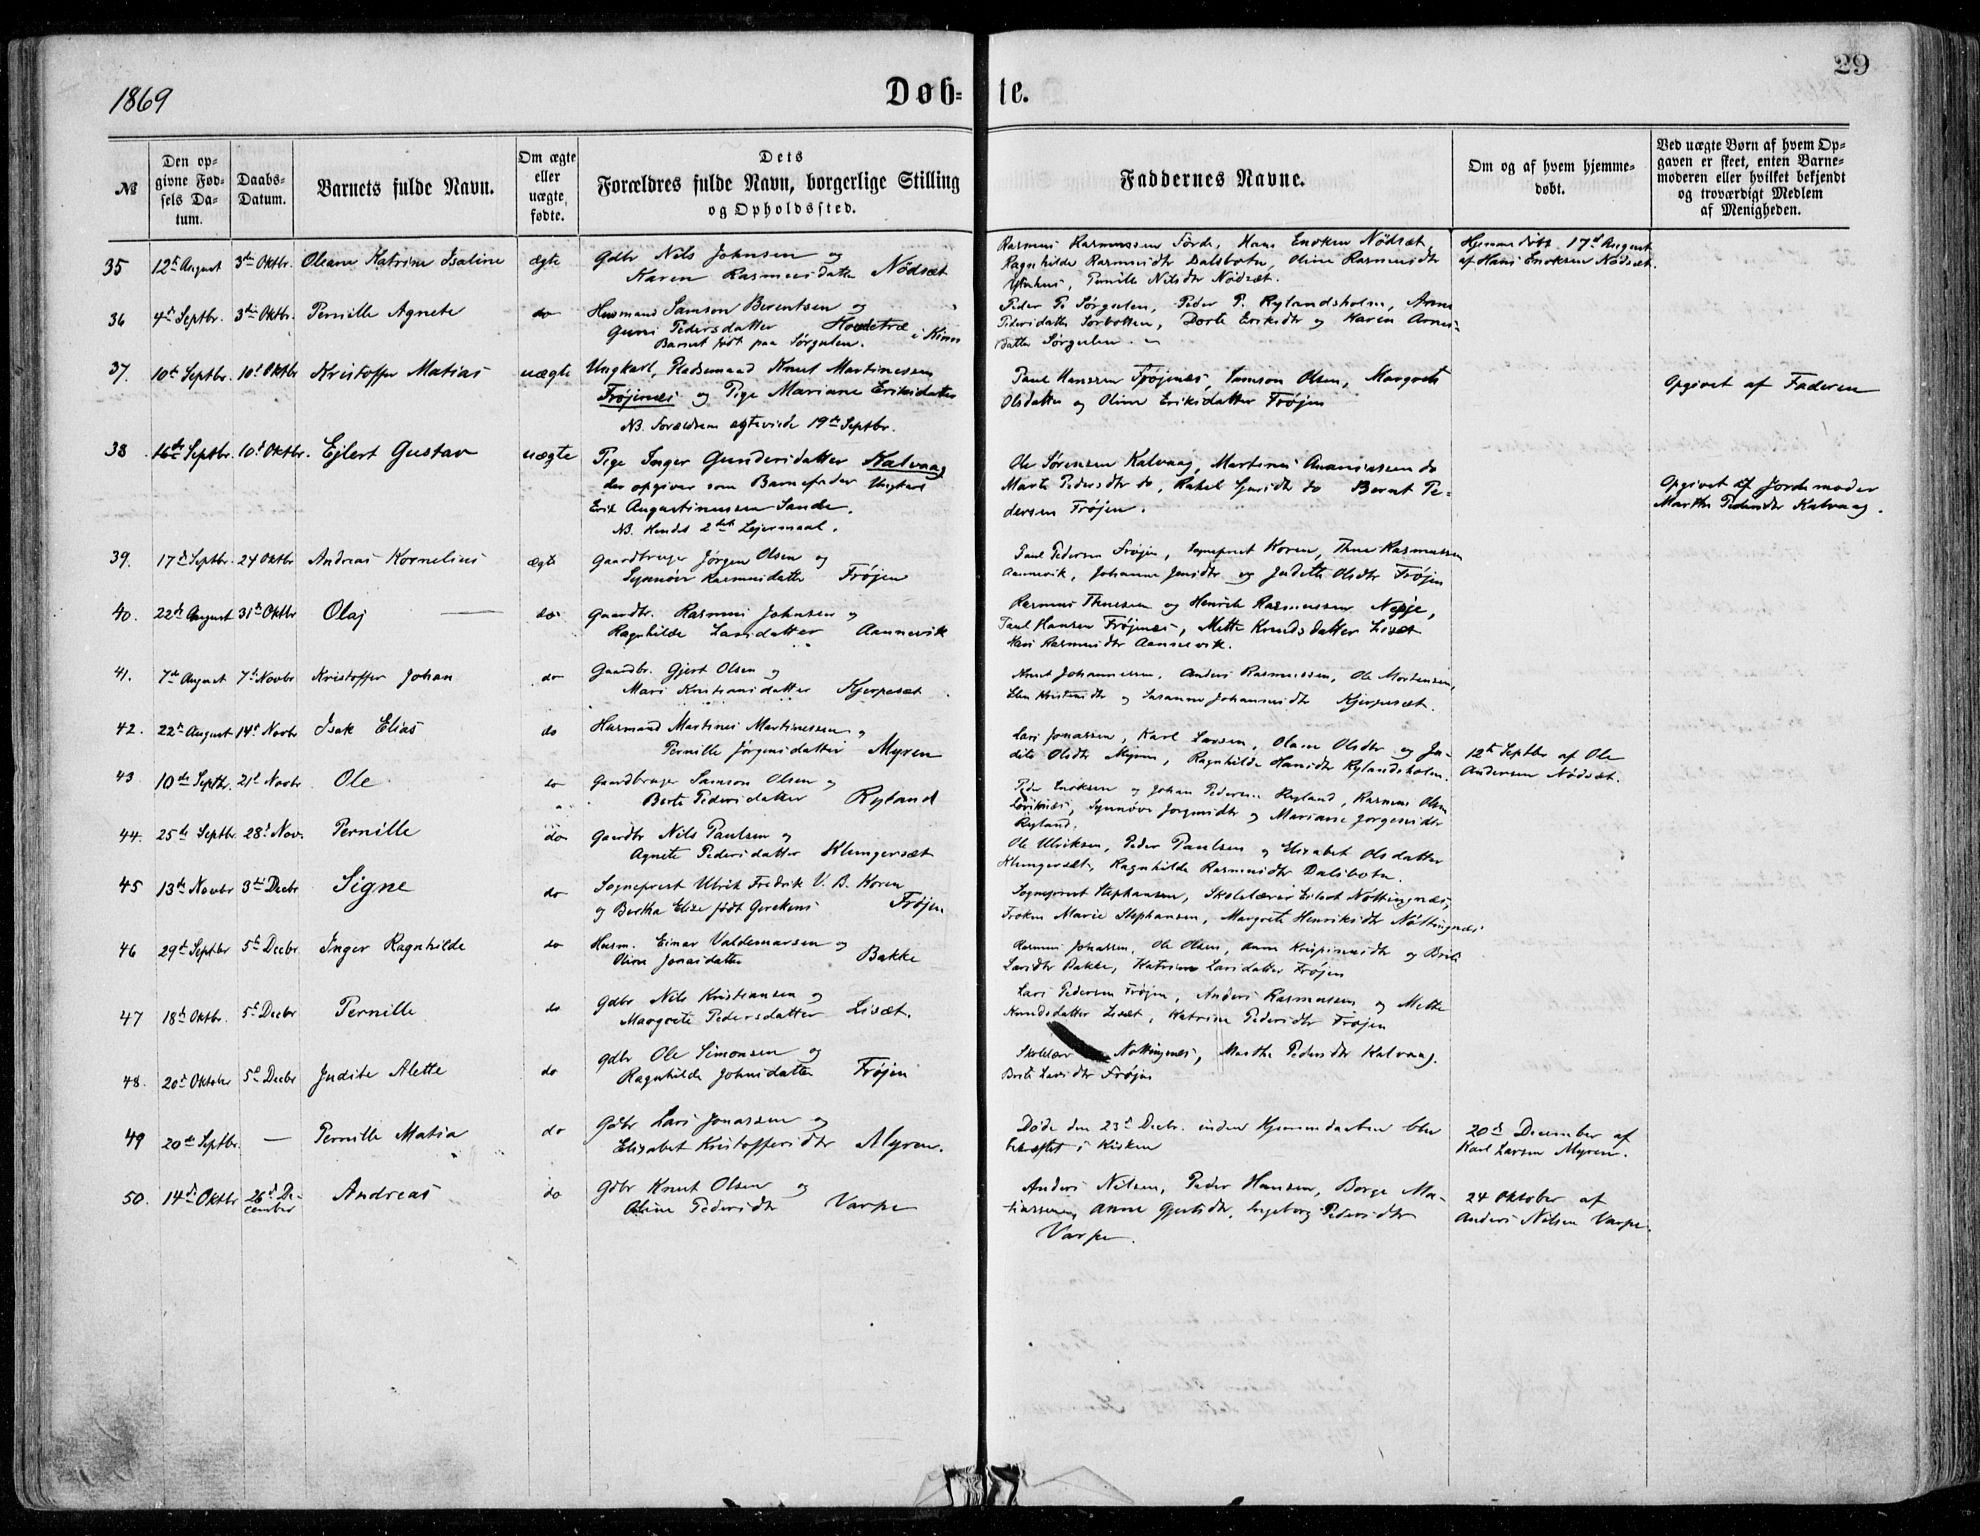 29
1869
Døb-
te.
№
Den op-
givne Fød-
sels Da-
tum.
Daabs-
Datum.
Barnets fulde Navn.
Om ægte
eller
uægte,
fødte.
Dets
Forældres fulde Navn, borgerlige Stilling
og Opholdssted.
Faddernes Navne.
Om og af hvem hjemme-
døbt.
Ved uægte Børn af hvem Op-
gaven er skeet, enten Barne-
moderen eller hvilket bekjendt
og troværdigt Medlem
af Menigheden.
35 12te August 3die Oktbr. Oleane Katrine Isaline ægte Gdbr Nils Johnsen og
Karen Rasmusdatter Nødsæt
Rasmus Rasmussen Førde, Hans Enoksen Nødsæt,
Ragnhilde Rasmusdtr Dalsbotn, Oline Rasmusdtr
Pernille Nilsdtr Nødsæt.
Hjemmedøbt 17de August
af Hans Enoksen Nødsæt.
36 4de Septbr. 3die Oktbr. Pernille Agnete do Husmand Samson Berentsen og
Guni Pedersdatter Hovdetræ i Kinn
Barnet født paa Sørgulen.
Peder Ps Sørgulen, Peder P. Rylandsholm, Anne
Pedersdatter Sørbotten, Dorte Eriksdtr og Karen Arnes-
datter Sørgulen.
37. 10de Septbr. 10de Oktbr Kristoffer Matias uægte Ungkarl, Pladsemand Knut Martinessen
Frøjenæs og Pige Mariane Eriksdatter
NB. Forældrene ægteviede 19de Septbr.
Paul Hanssen Frøjenæs, Samson Olsen, Margrete
Olsdatter og Oline Eriksdatter Frøjen
Opgivet af Faderen
38 16de Septbr. 10de Oktbr. Ejlert Gustav uægte Pige Inger Gundersdatter Kalvaag
der opgiver som Barnefader Ungkarl
Erik Augustinussen Sande.
NB. Hendes 2det Lejermaal.
Ole Sørensen Kalvaag, Martinus Ananiassen do
Marte Pedersdtr do, Rakel Sjursdtr do Bernt Pe-
dersen Frøjen.
Opgivet af Jordemoder
Marthe Pedersdtr Kalvaag.
39. 17de Septbr. 24 Oktbr Andreas Kornelius ægte Gaardbruger Jørgen Olsen og
Synnøve Rasmusdatter Frøjen
Paul Pedersen Frøjen, Sogneprest Koren, Thue Rasmussen
Aannevik, Johanne Jensdtr og Judithe Olsdtr Frøjen
40. 22de August 31te Oktbr Olaj do Gaardbr. Rasmus Johnsen og
Ragnhilde Larsdatter Aannevik
Rasmus Thuesen og Henrik Rasmussen Nepje,
Paul Hansen Frøjenæs, Mette Knudsdatter Lisæt
Rasmusdtr Aannevik.
41. 7de August 7de Novbr Kristoffer Johan do Gaardbr. Gjert Olsen og
Mari Kristiansdatter Kjerpesæt
Knut Johannessen, Anders Rasmussen, Ole Mortensen,
Elen Kristensdtr og Susanne Johannesdtr Kjerpesæt.
42. 22de August 14de Novbr Isak Elias do Husmand Martines Martinessen og
Pernille Jørgensdatter Myren
Lars Jonassen, Karl Larsen, Olane Olsdtr og Ju-
dite Olsdtr Myren, Ragnhilde Hansdtr Rylandsholm.
12te Septbr af Ole
Andersen Nødsæt.
43 10de Septbr. 21de Novbr. Ole do Gaardbruger Samson Olsen og
Berte Pedersdatter Ryland
Peder Enoksen og Johan Pedersen Ryland, Rasmus Olsen
Synnøve Jørgensdtr og Mariane Jørgensdtr
Ryland.
44. 25de Septbr. 28de Nov. Pernille do Gaardbr Nils Paulsen og
Agnete Pedersdatter Klungersæt
Ole Ulriksen, Peder Paulsen og Elisabet Olsdatter
Klungersæt, Ragnhilde Rasmusdtr Dalsbotn.
45 13de Novbr 3die Decbr Signe do Sogneprest Ulrik Fredrik V. B. Koren
og Bertha Elise født Gerckens Frøjen
Sogneprest Stephansen, Skolelærer Eilert Nøttingnæs,
Frøken Marie Stephansen, Margrete Henriksdtr Nøttingnæs
46 29de Septbr 5te Decbr Inger Ragnhilde do Husm. Einar Valdemarsen og
Oline Jonasdatter Bakke
Rasmus Johassen, Ole Olsen, Anne Krispinusdtr og Brite
Larsdtr Bakke, Katrine Larsdatter Frøjen
47 18de Oktbr. 5te Decbr Pernille do Gdbr Nils Kristiansen og
Margrete Pedersdatter Lisæt.
Lars Pedersen Frøjen, Anders Rasmussen og Mette
Knudsdatter Lisæt, Katrine Pedersdtr Frøjen
48. 20de Oktober 5te Decbr Judite Alette do Gdbr Ole Simonsen og
Ragnhilde Johnsdatter Frøjen
Skolelær Nøttingnæs, Marthe Pedersdtr Kalvaag.
Brite Larsdtr Frøjen
49 20de Septbr. — Pernille Matia do Gdbr Lars Jonassen og
Elisabet Kristoffersdtr Myren.
Døde den 23de Decbr. inden Hjemmedaaben blev
bekræftet i Kirken
20de December af
Karl Larsen Myren.
50. 14de Oktbr 26de De-
cember Andreas do Gdbr Knut Olsen og
Oline Pedersdtr Varpe
Anders Nilsen, Peder Hansen, Børge Ma-
tiassen, Anne Gjertsdtr, Ingeborg Pedersdtr
Varpe.
24 Oktober af
Anders Nilsen Varpe.